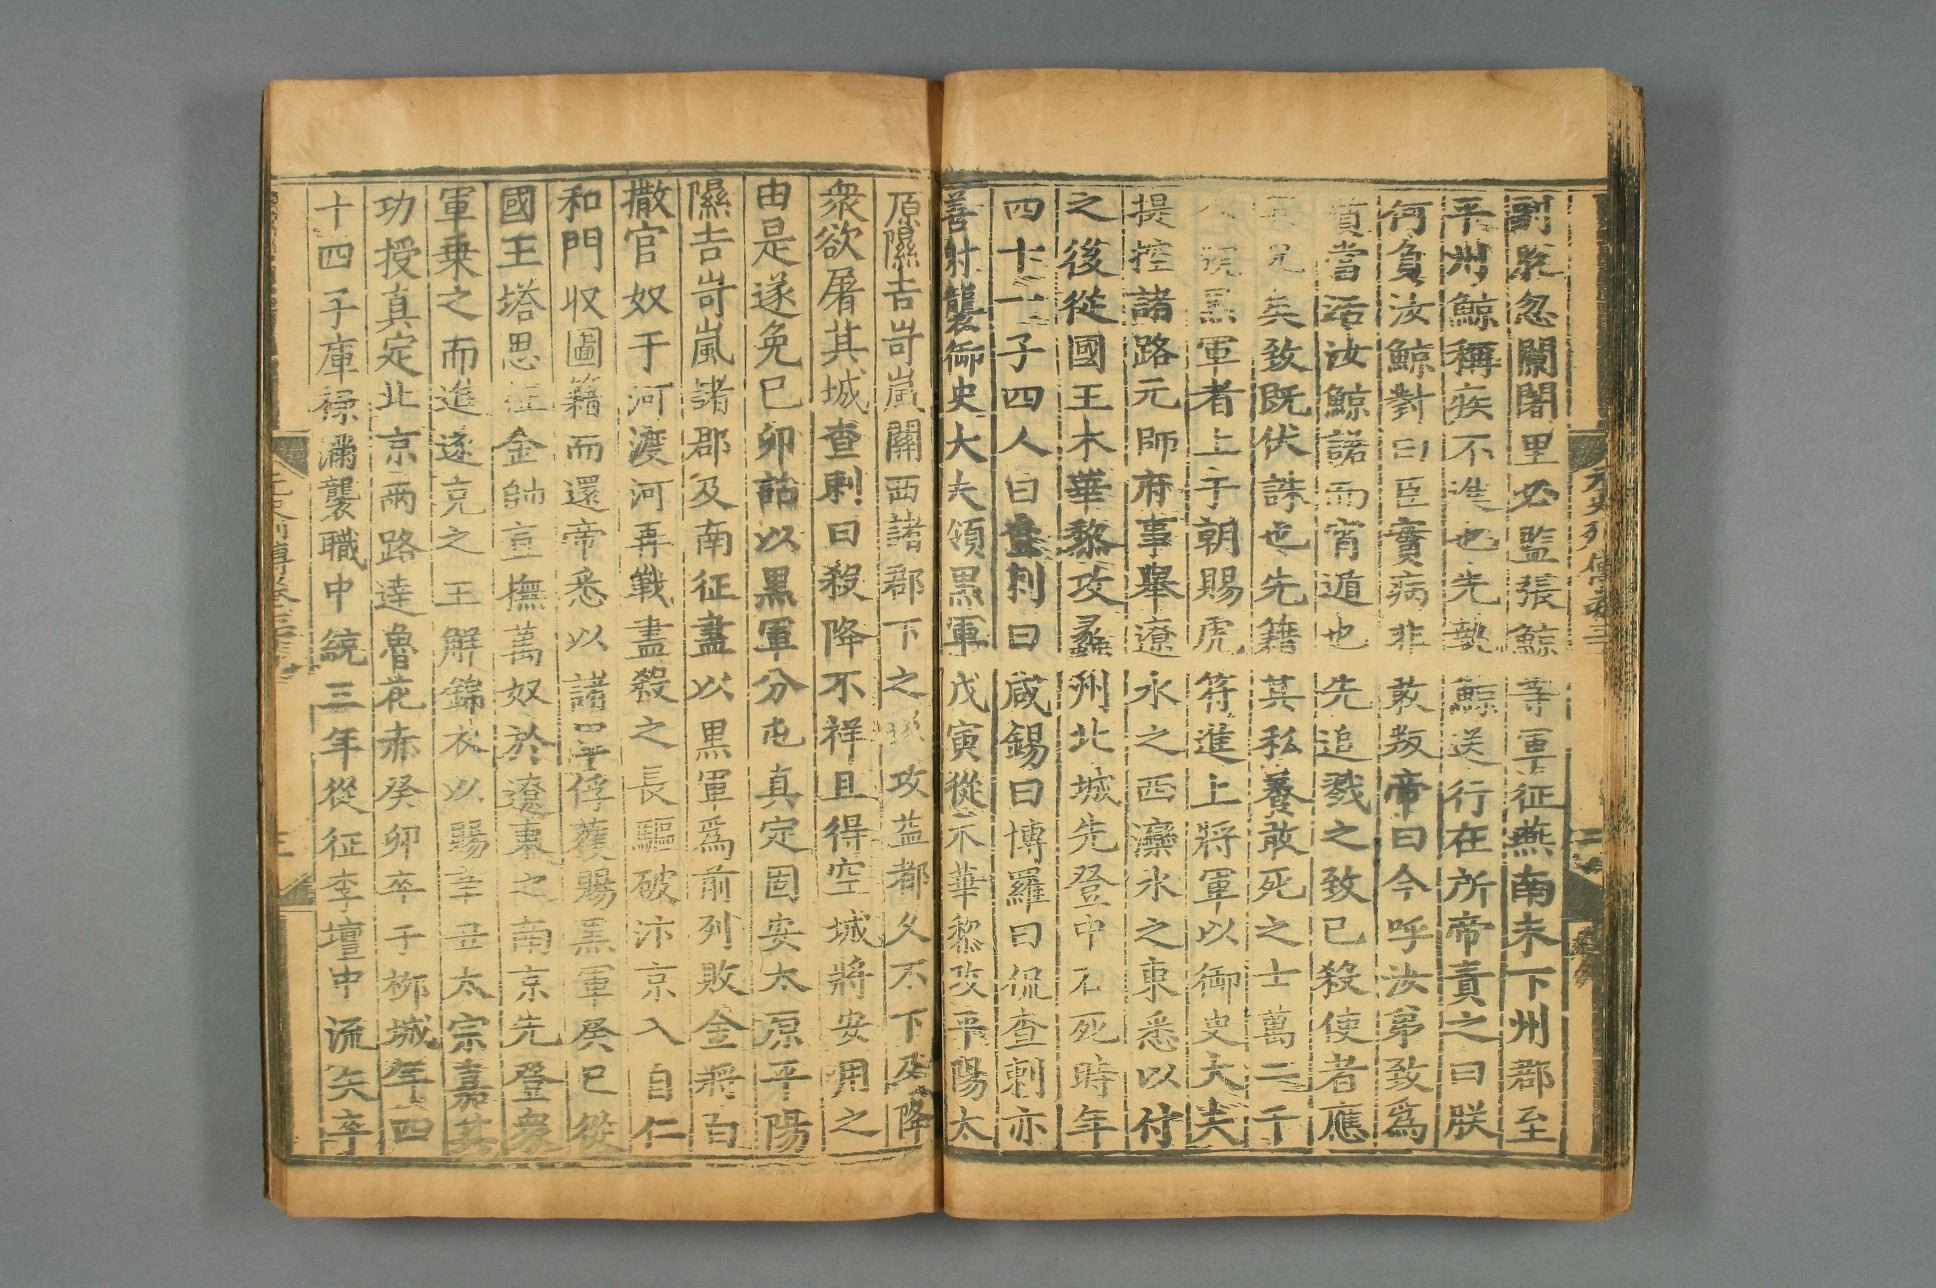 副脫忽闌闍里必監張鯨等軍征燕南未下州郡至
平州鯨稱疾不進也先鯨送行在所帝責之曰朕
何負汝鯨對曰臣實病非敢叛帝曰今呼汝弟致爲
質當活汝鯨諾而宵遁也先追戮之致已殺使者應
其兄矣致既伏誅也先籍其私養敢死之士萬二千
黑軍者上于朝賜虎符進上將軍以御史大夫
提控諸路元帥府事舉遼水之西灤水之東悉以付
之後從國王木華黎攻蠡州北城先登中石死時年
四十一子四人曰查剌曰咸錫曰博羅曰侃查剌亦
善射襲御史大夫領黑軍戊寅從木華黎攻平陽太
原隰吉岢嵐關西諸郡下之攻益都久不下及降
衆欲屠其城查剌曰殺降不祥且得空城將安用之
由是遂免己卯詔以黑軍分屯真定固安太原平陽
隰吉岢嵐諸郡及南征盡以黑軍爲前列敗金將白
撒官奴于河渡河再戰盡殺之長驅破汴京入自仁
和門収圖籍而還帝悉以諸軍俘獲賜黑軍癸巳從
國王塔思征金帥宣撫萬奴於遼東之南京先登衆
軍乗之而進遂克之王解錦衣以賜辛丑太宗嘉其
功授真定北京兩路達魯花赤癸卯卒于柳城年四
十四子庫祿滿襲職中統三年從征李璮中流矢卒